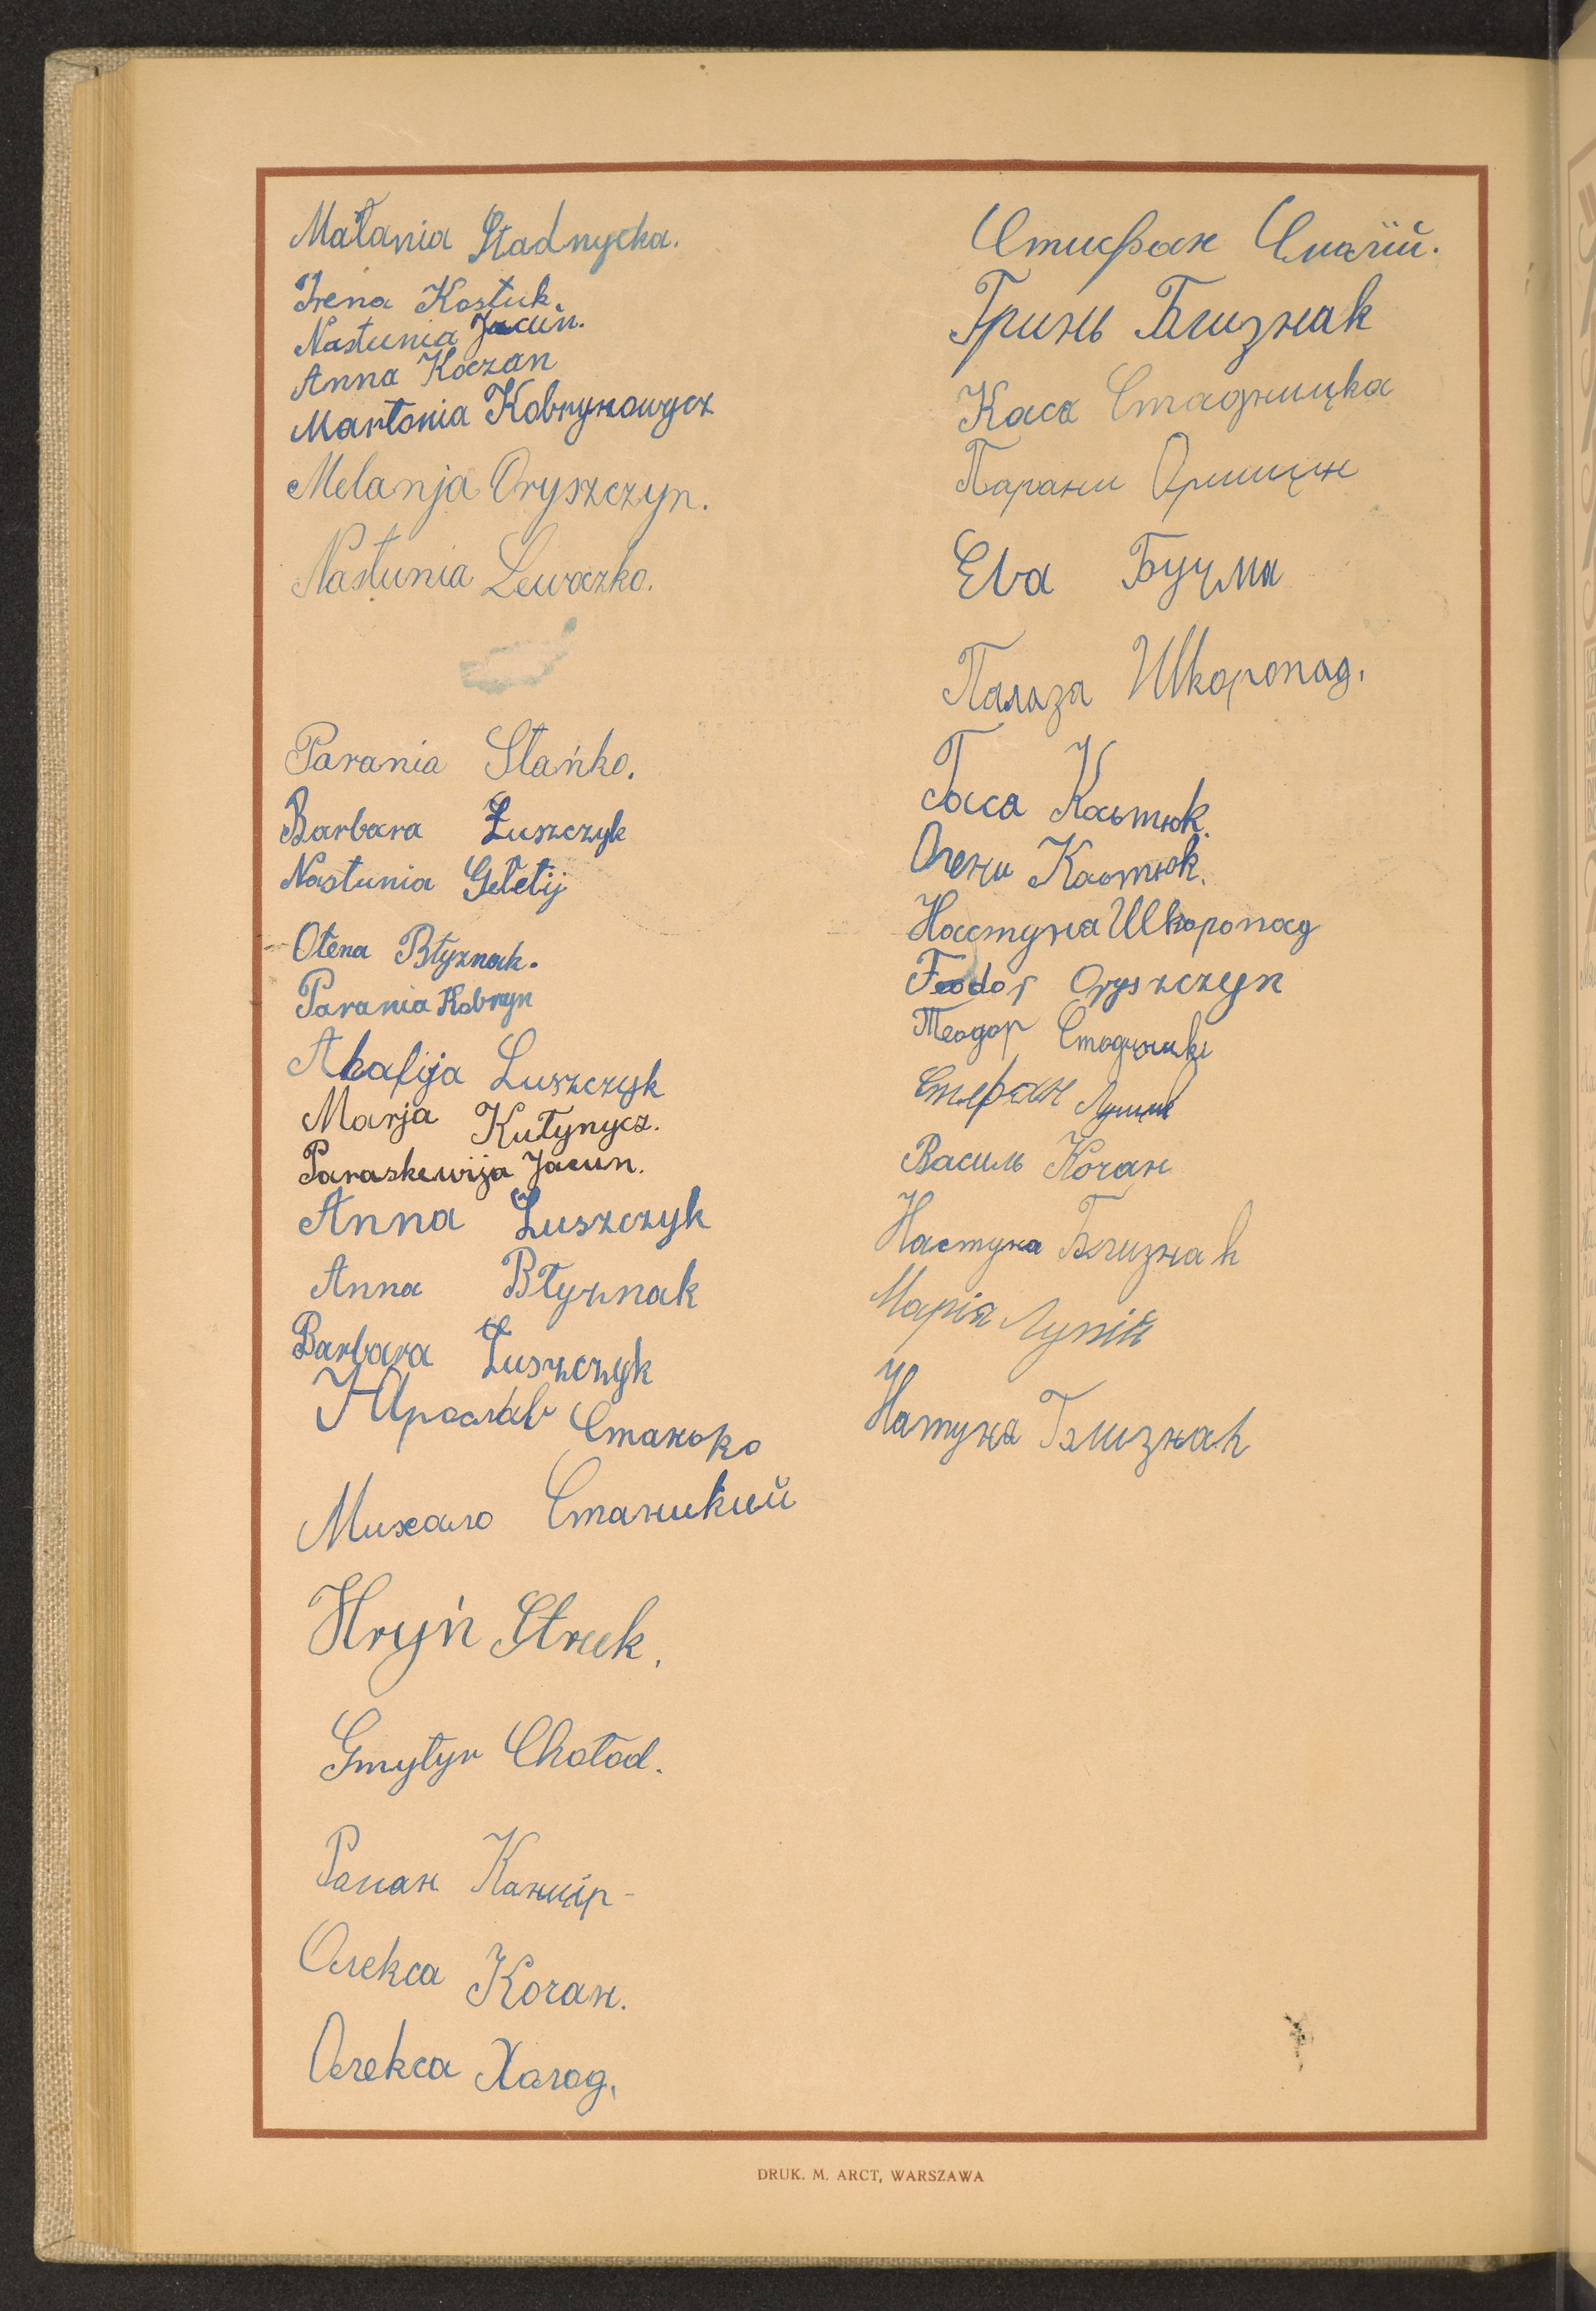 Małania Stadnycka.
Irena Kostuk.
Nastunia Jacuń.
Anna Koczan
Martonia Kobrynowycz
Melanja Oryszczyn.
Nastunia Lewoczko.
Parania Stańko.
Barbara Łuszczyk
Nastunia Geletij
Ołena Błyznak.
Parania Kobryn
Akafija Luszczyk
Marja Kułynycz.
Paraskewija Jacun.
Anna Łuszczyk
Anna Błyznak
Barbara Łuszczyk
Станько
Михало Станикий
Hryń Struk.
Gmytyr Chołod.
Канцір
Олекса Кочан.
Олекса Халод.
Стифан
Гринь Близнак
Кася Стадницка
Парани Оришин
Ева Бучма
Палаза Шкоропад.
Гася Костюк.
Олени Костюк.
Настуня Шкоропад
Feodor Oryszczyn
Теодор Стадник
Стефан
Василь Кочан
Настуня Близнак
Марія Лупій
Натуня Близнак
DRUK. M. ARCT, WARSZAWA